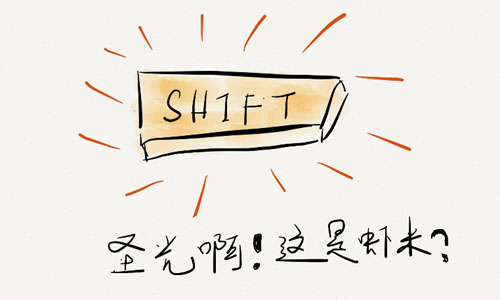 SHIFT
圣光啊!这是虾米?